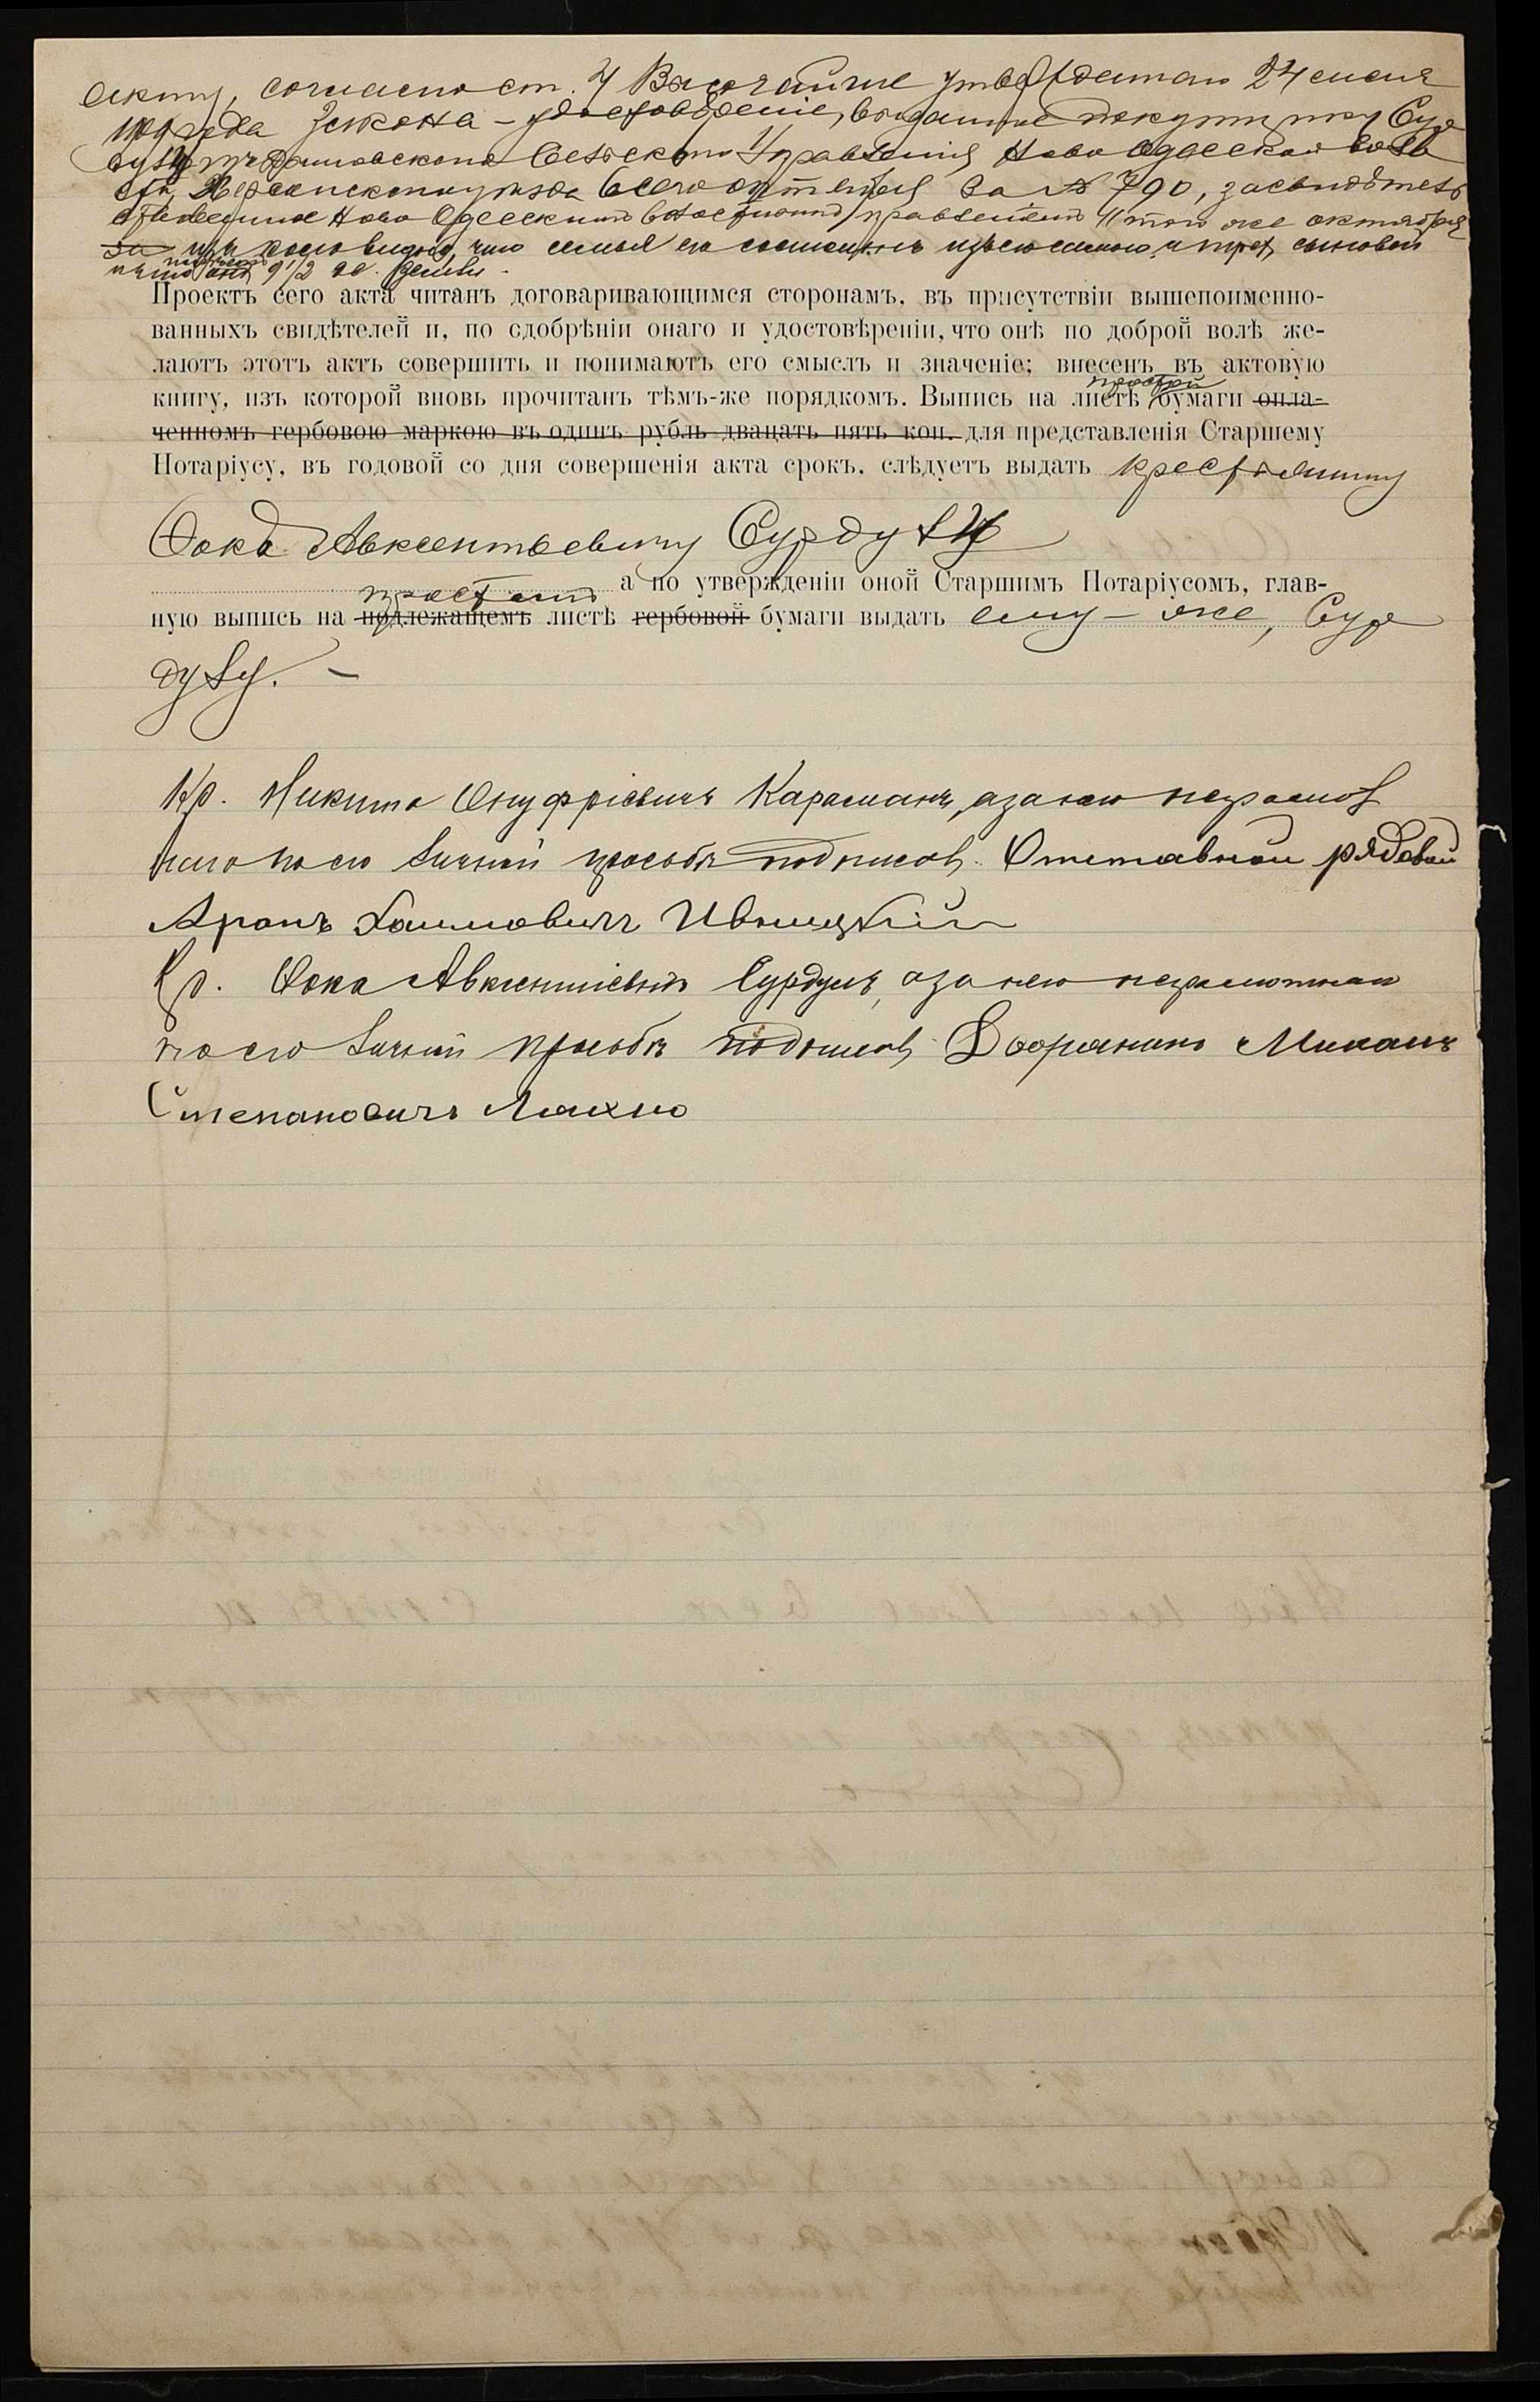 акту, согласно ст. 4 Высочайше утвержденнаго 24 июня
года Закона – удостовѣреніе, выданное покупщику Сур
дулу Сельскаго Управленія, Ново Одесской воло
сти, Херсонскаго уѣзда 6 сего октября за № 790, засвидѣтель
ствованное Ново Одесскимъ волостнымъ правленіемъ 11 того же октября
за изъ коего видно, что семья его состоитъ изъ его самого и трех сыновей
9 1/2 де. земли.
Проектъ сего акта читанъ договаривающимся сторонамъ, въ присутствіи вышепоименно-
ванныхъ свидѣтелей и, по одобрѣніи онаго и удостовѣреніи, что онѣ по доброй волѣ же-
лаютъ этотъ актъ совершить и понимаютъ его смыслъ и значеніе; внесенъ въ актовую
простой
книгу, изъ которой вновь прочитанъ тѣмъ-же порядкомъ. Выпись на листѣ бумаги опла-
ченномъ гербовою маркою въ одинъ рубль двацать пять коп. для представленія Старшему
Нотаріусу, въ годовой со дня совершенія акта срокъ, слѣдуетъ выдать крестьянину
Фокѣ Авксентьевичу Сурдулу
а по утвержденіи оной Старшимъ Нотаріусомъ, глав-
простомъ
ную выпись на подлежащемъ листѣ гербовой бумаги выдать ему – же, Сур
дулу. –
Кр. Никита Онуфріевичъ Караманъ, а за него неграмот
наго по его личной просьбѣ подписалъ Отставной рядовой
Аронъ Хаимовичъ Ивницкій
Кр. Фока Авксентіевичъ Сурдулъ, а за него неграмотнаго
по его личной просьбѣ подписалъ Дворянинъ Михаилъ
Степановичъ Махно